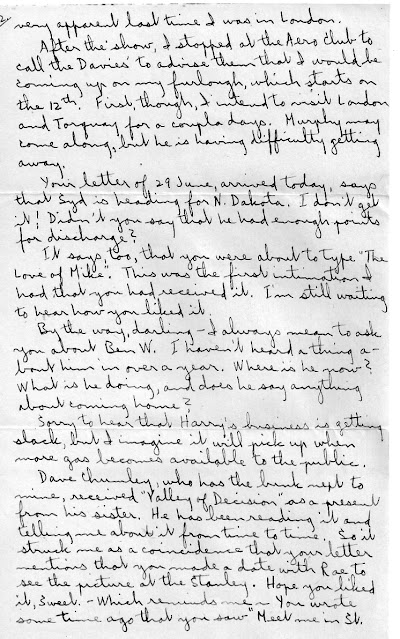 2.
very apparent last time I was in London.
After the show, I stopped at the Aero Club to
call the Davies' to advise them that I would be
coming up on my furlough, which starts on
the 12th. First, though, I intend to visit London
and Torquay for a coupla days. Murphy may
come along, but he is having difficulty getting
away.
Your letter of 29 June, arrived today, says
that Syd is heading for N. Dakota. I don't get
it! Didn't you say that he had enough points
for discharge?
It says, too, that you were about to type "The
Love of Mike". This was the first intimation I
had that you had received it. I'm still waiting
to hear how you liked it.
By the way, darling - I always mean to ask
you about Ben W. I haven't heard a thing a-
bout him in over a year. Where is he now?
What is he doing, and does he say anything
about coming home?
Sorry to hear that Harry's business is getting
slack, but I imagine it will pick up when
more gas becomes available to the public.
Dave Chumley, who has the bunk next to
mine, received "Valley of Decision" as a present
from his sister. He has been reading it and
telling me about it from time to time. So it
struck me as a coincidence that your letter
mentions that you made a date with Rae to
see the picture at the Stanley. Hope you liked
it, Sweet. - Which reminds me - You wrote
some time ago that you saw "Meet me in St.